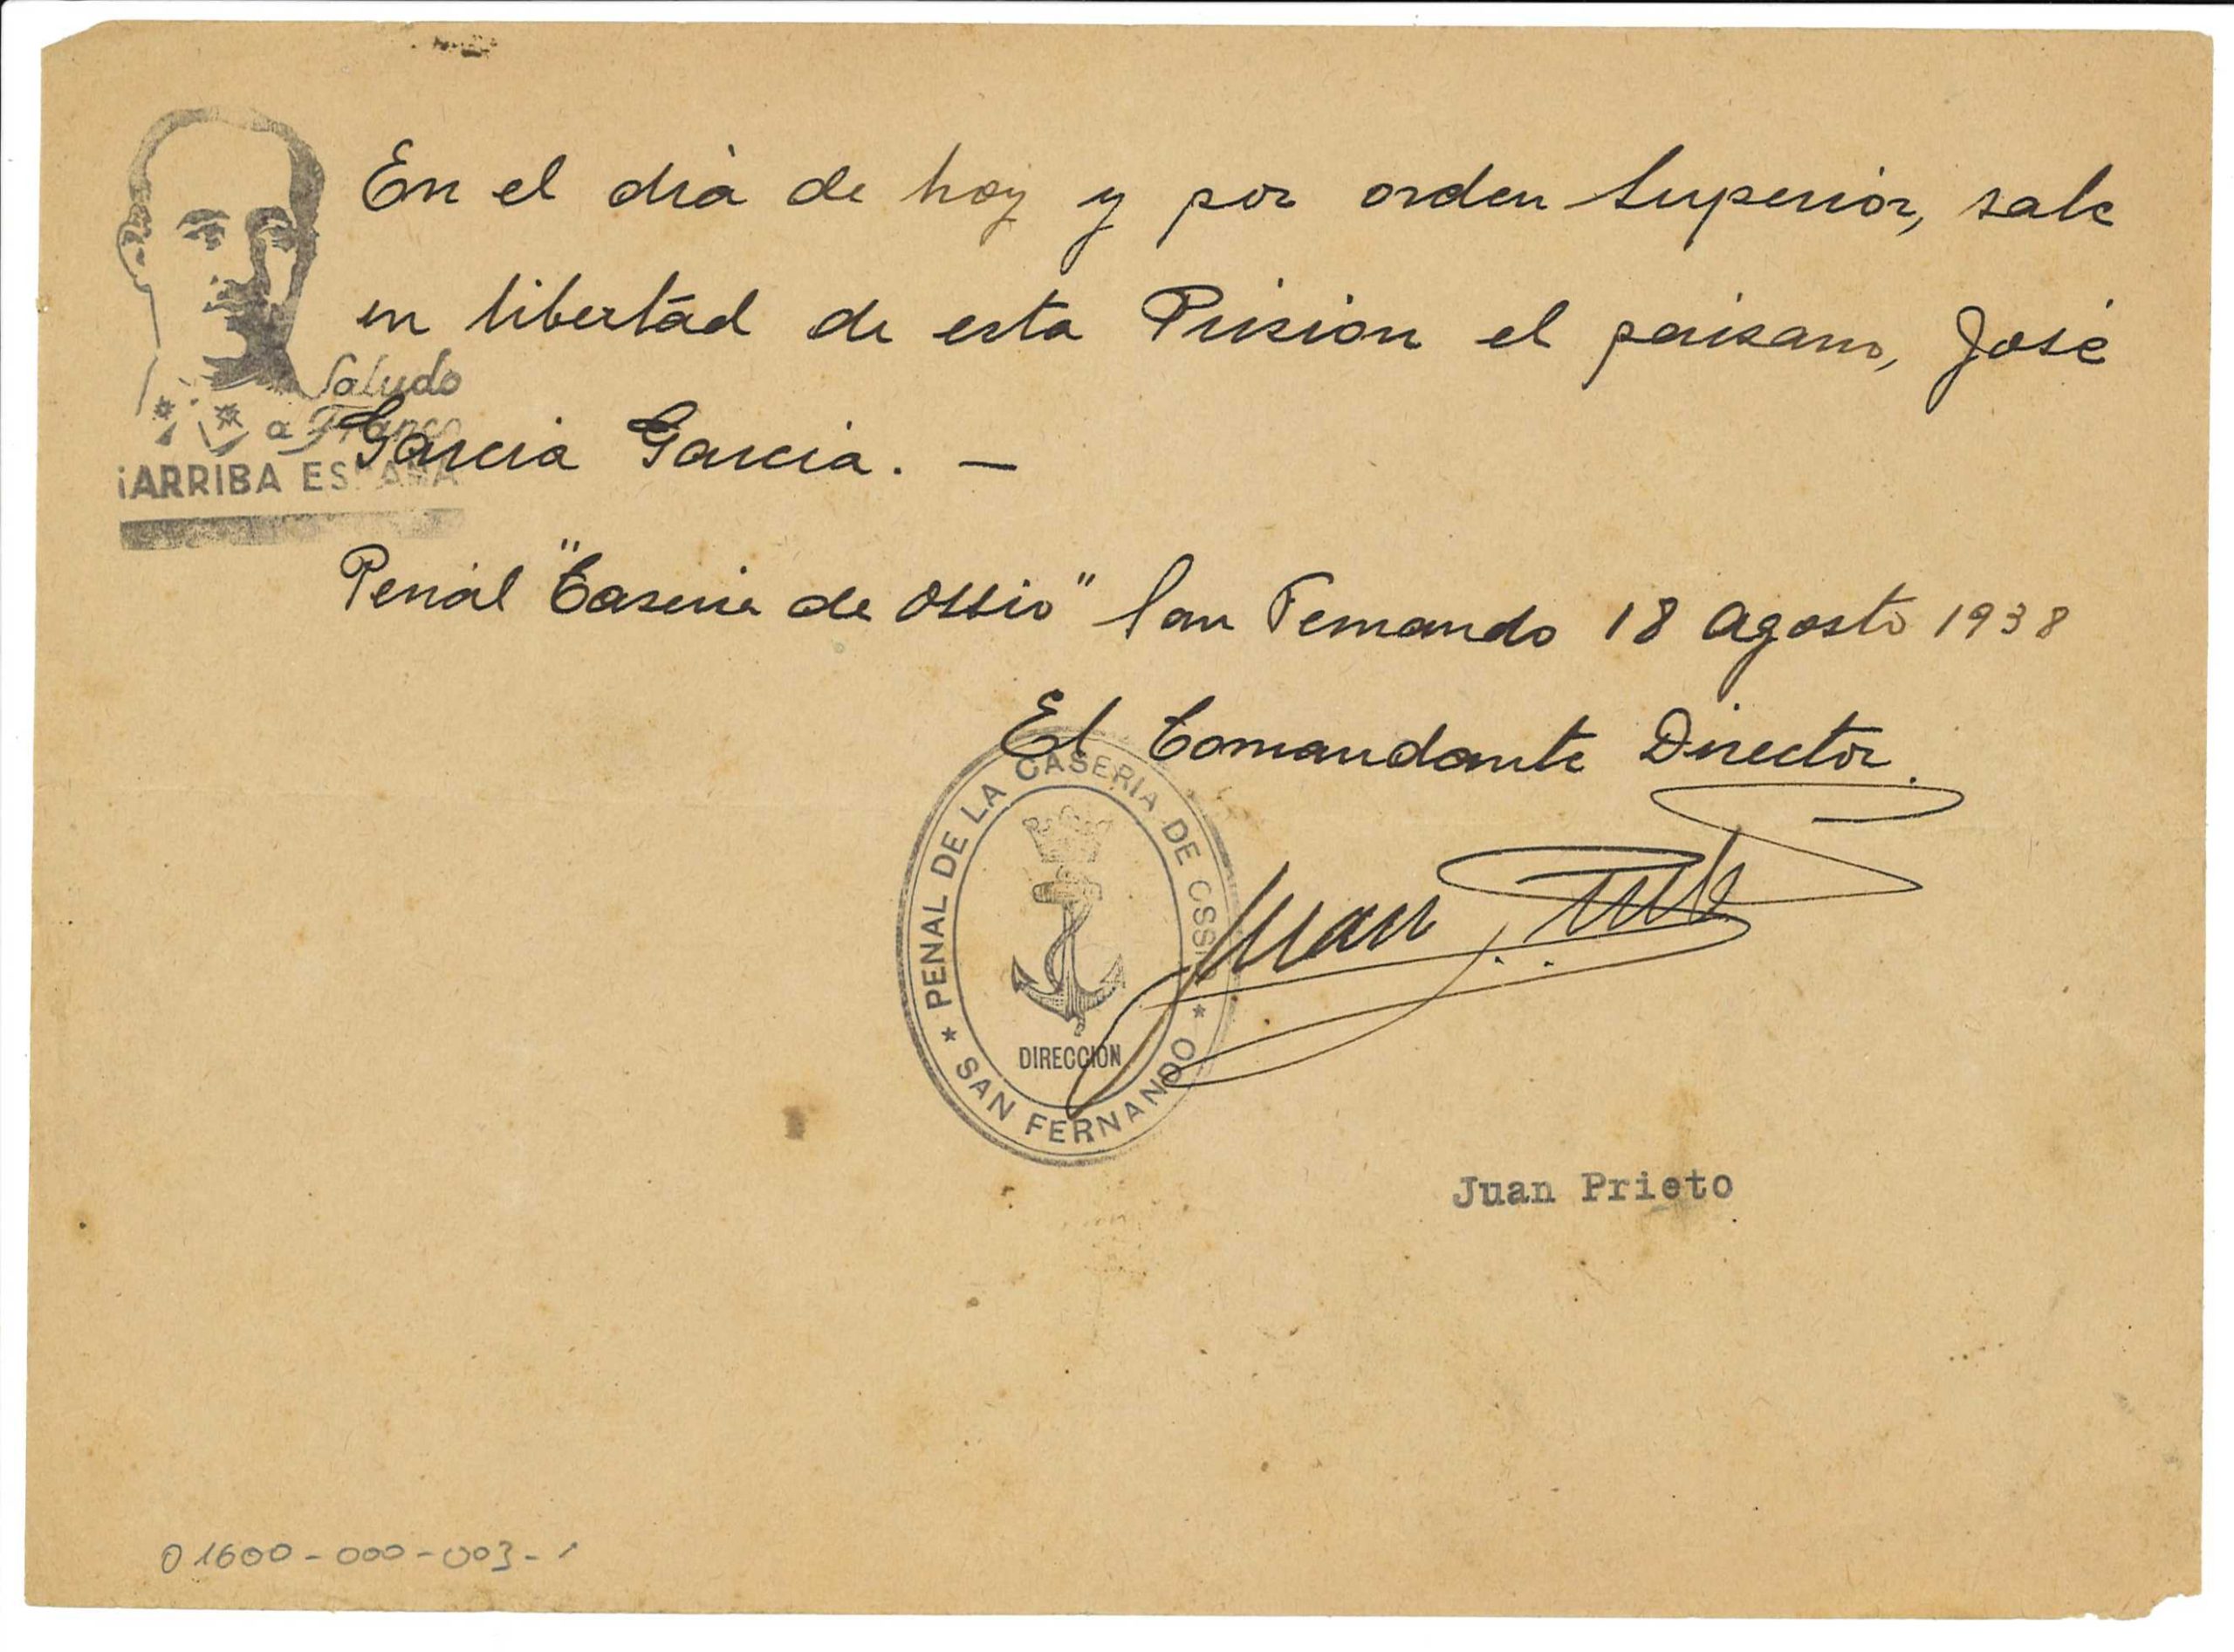 En el dià de hoy y por orden Superior, sale
en libertád de esta Prision el paisano, José
Garcia Garcia. —
Saludo
a Franco
¡ARRIBA ESPAÑA
Penal "Caseria de Ossio" San Fernando 18 Agosto 1938
El Comandante Director.
PENAL DE LA CASERIA DE OSSIO
DIRECCION
* SAN FERNANDO *
Juan Prieto
Juan Prieto
01600-000-003-1